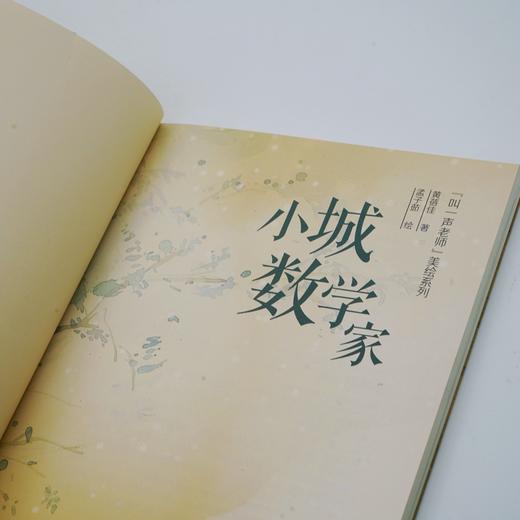 「叫一声老师」美绘系列
黄蓓佳 著
孟子茹 绘
小城
数学家